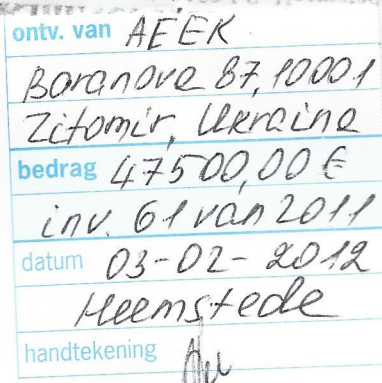 ontv. van AEEK
Baranova 87, 10001
Zitomir, Ukraine
bedrag 47500,00 €
inv. 61 van 2011
datum 03-02-2012
Heemstede
handtekening